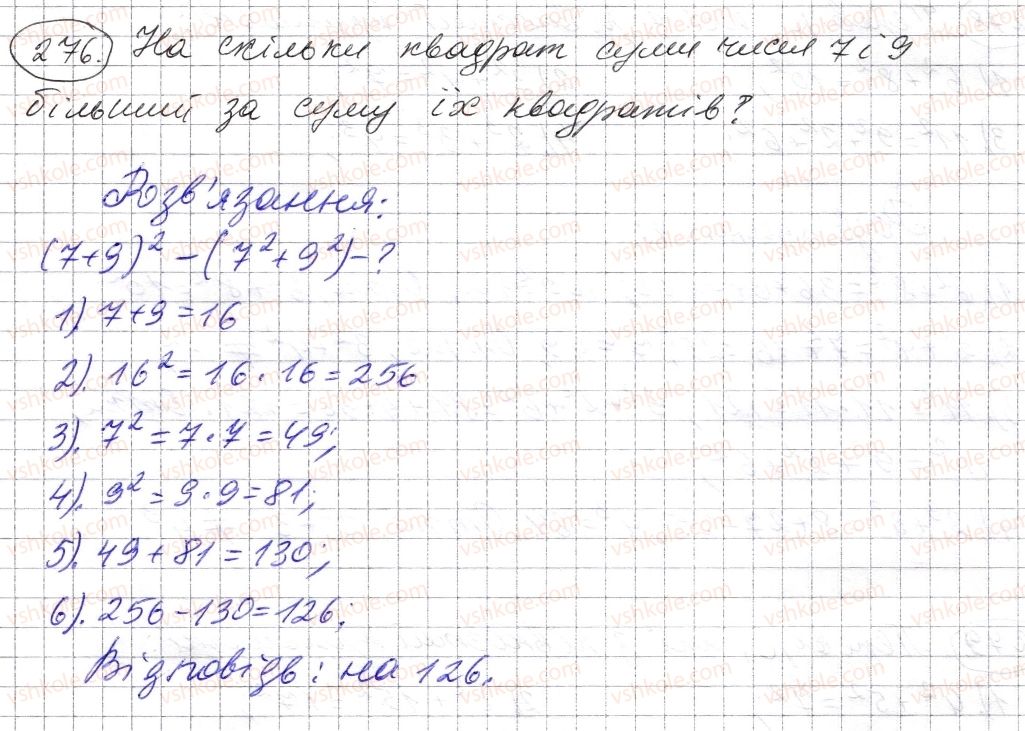 276. На скільки квадрат суми чисел 7 і 9
більший за суму їх квадратів?
Розв'язання:
(7+9)² – (7²+9²) – ?
1). 7+9=16
2). 16² = 16 · 16 = 256
3). 7² = 7 · 7 = 49;
4). 9² = 9 · 9 = 81;
5). 49 + 81 = 130;
6). 256 – 130 = 126;
Відповідь: на 126.